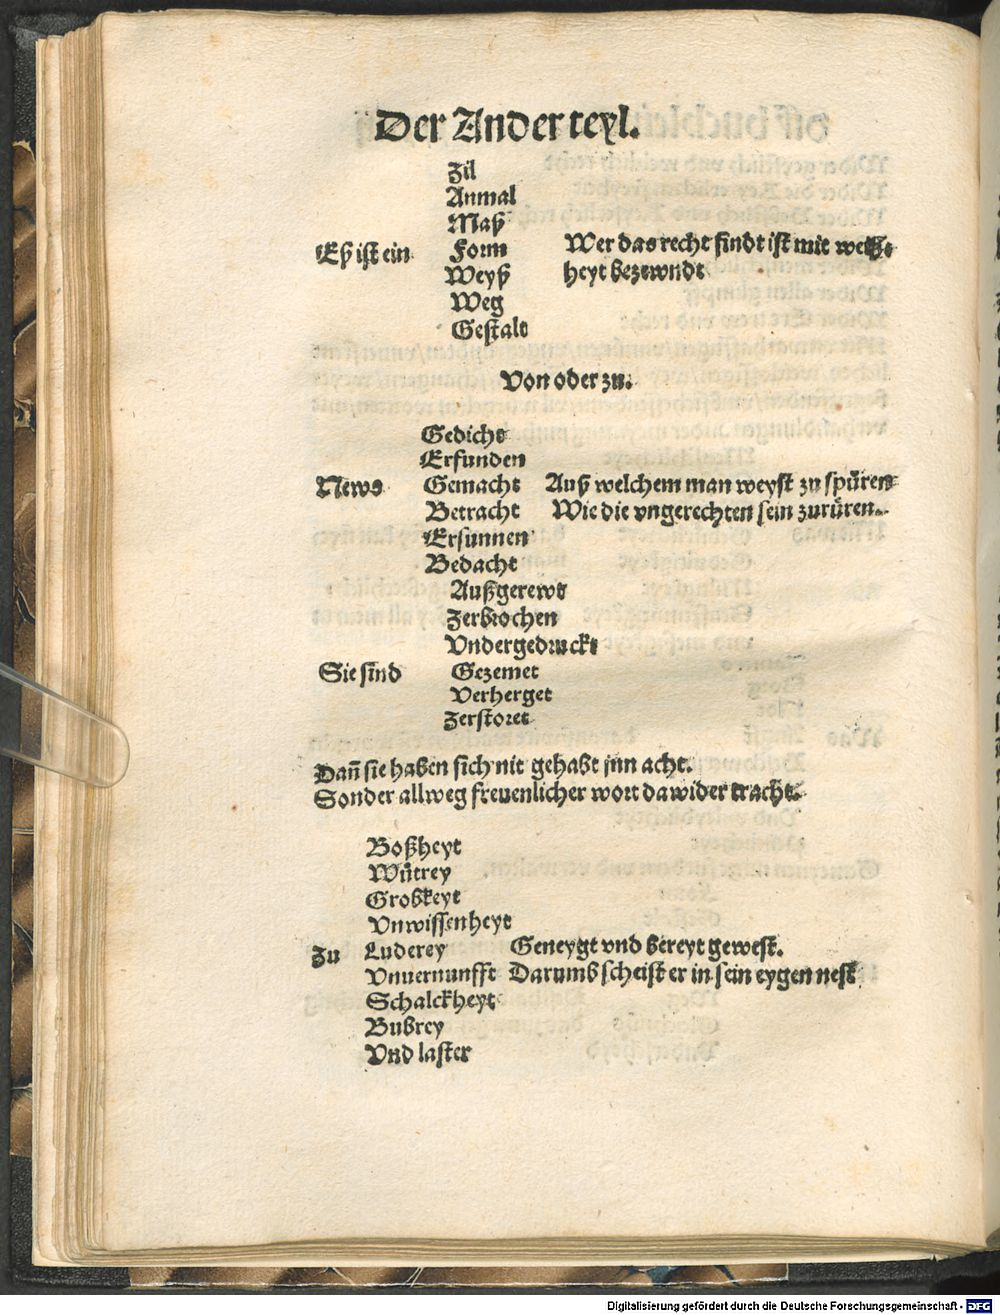 Der Ander teyl.
Zil
Anmal
Maß
Eß ist ein Form Wer das recht findt ist mit
Weyß heyt bezewndt
Weg
Gestalt
Von oder zu.
Gedicht
Erfunden
News Gemacht Auß welchem man weyst zu spüren
Betracht Wie die vngerechten sein zurüren.
Ersunnen
Bedacht
Außgerewt
Zerbrochen
Vndergedruckt
Sie sind Gezemet
Verherget
Zerstoret
Dañ sie haben sich nit gehabt jnn acht.
Sonder allweg freuenlicher wort dawider tracht.
Boßheyt
Wütrey
Grobkeyt
Vnwissenheyt
Zu Luderey Geneygt vnd bereyt gewest.
Vnuernunfft Darumb scheist er in sein eygen nest
Schalckheyt
Bubrey
Vnd laster
Digitalisierung gefördert durch die Deutsche Forschungsgemeinschaft - DFG